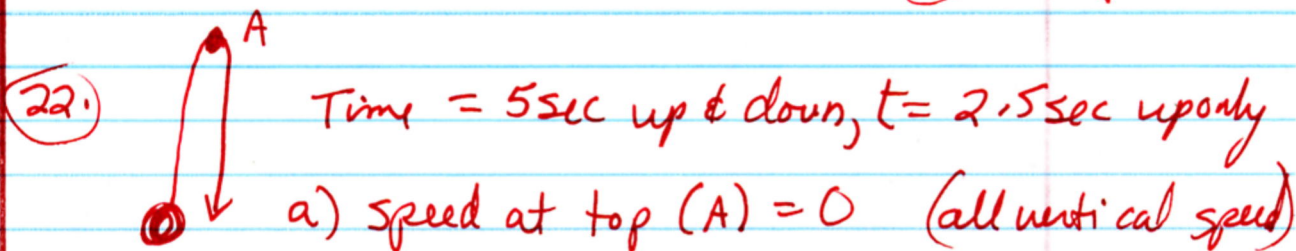 A
22. Time = 5sec up & down, t = 2.5sec up only
a) speed at top (A) = 0 (all vertical speed)